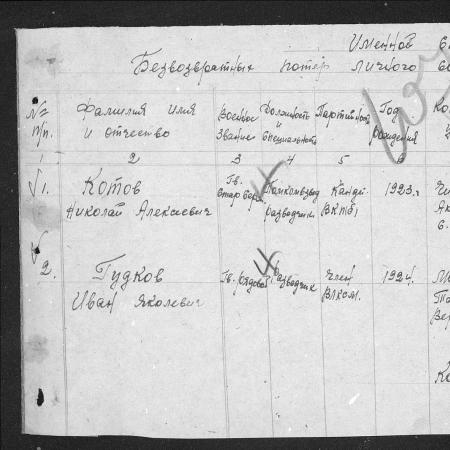 Именной
Безвозвратных потерь личного
№№ п/п.
Фамилия имя и отчество
Военное звание
Должность и специальность
Партийность
Год рождения
1 2 3 4 5 6
1. Котов Николай Алексеевич
Гв.
Помкомвзвод разведчик
Канди. ВКПб/
1923г.
6.
2. Гудков Иван Яковлевич
Гв. рядовой
Разведчик
Член ВЛКСМ.
1924.